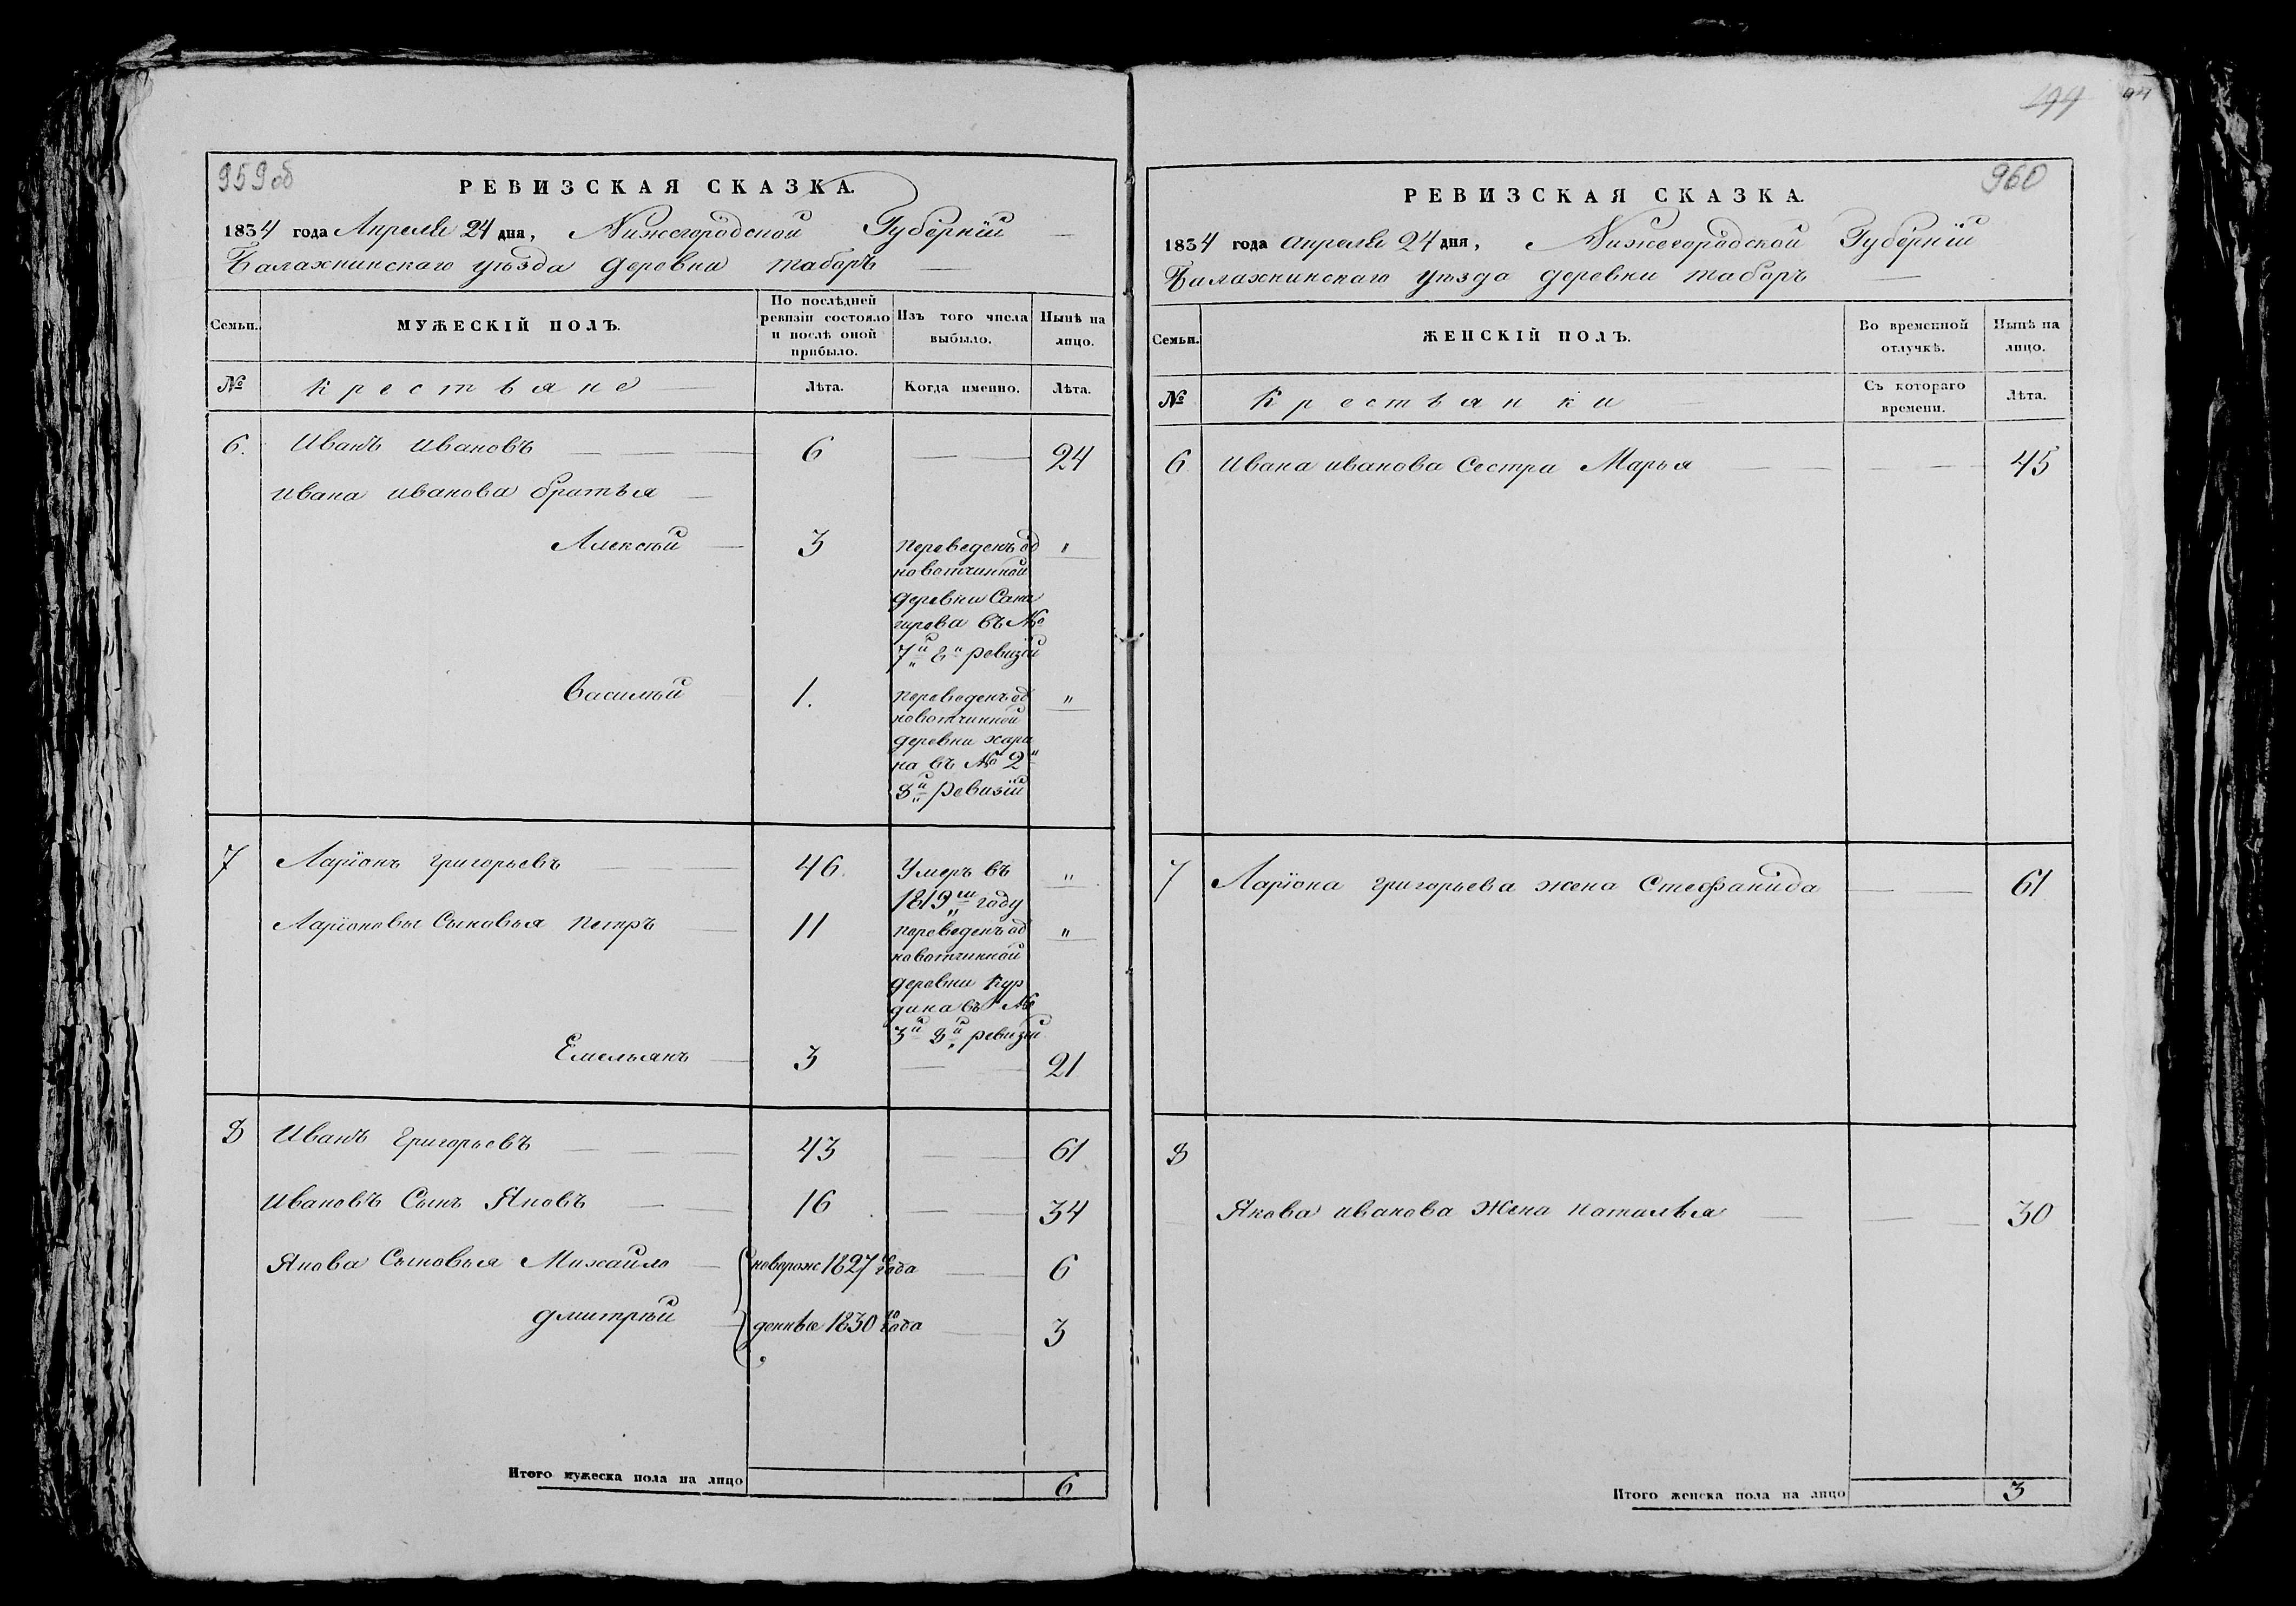 959 об
РЕВИЗСКАЯ СКАЗКА.
1834 года Апреля 24 дня, Нижегородской Губернiи
Балахнинскаго уѣзда деревни Таборъ
Семьи.
МУЖЕСКІЙ ПОЛЪ.
По послѣдней ревизіи состояло и послѣ оной прибыло.
Изъ того числа выбыло.
Нынѣ на лицо.
№
Крестьяне
Лѣта.
Когда именно.
Лѣта.
6. Иванъ Ивановъ 6 24
Ивана Иванова братья
Алексѣй 3 переведенъ од "
новотчинной
деревни
въ №
7й 8й ревизiи
Василiй 1. переведенъ од "
новотчинной
деревни хари
на въ № 2й
8й ревизiи
7 Ларiонъ Григорьевъ 46. Умеръ въ "
1819м году
Ларiоновы Сыновья Петръ 11 переведенъ од "
новотчинной
деревни Кур
дина въ №
3й 8й ревизiи
Емельянъ 3 21
8 Иванъ Григорьевъ 43 61
Ивановъ Сынъ Яковъ 16 34
Якова Сыновья Михаило новорож 1827го года 6
Дмитрѣй денные 1830го года 3
Итого мужеска пола на лицо 6
199
94
960
РЕВИЗСКАЯ СКАЗКА.
1834 года апреля 24 дня, Нижегородской Губернiи
Балахнинскаго уѣзда деревни Таборъ
Семьи.
ЖЕНСКІЙ ПОЛЪ.
Во временной отлучкѣ.
Нынѣ на лицо.
№
Крестьянки
Съ котораго времени.
Лѣта.
6 Ивана Иванова Сестра Марья 45
7 Ларiона Григорьева жена Стефанида 61
8
Якова Иванова Жена Наталья 30
Итого женска пола на лицо 3